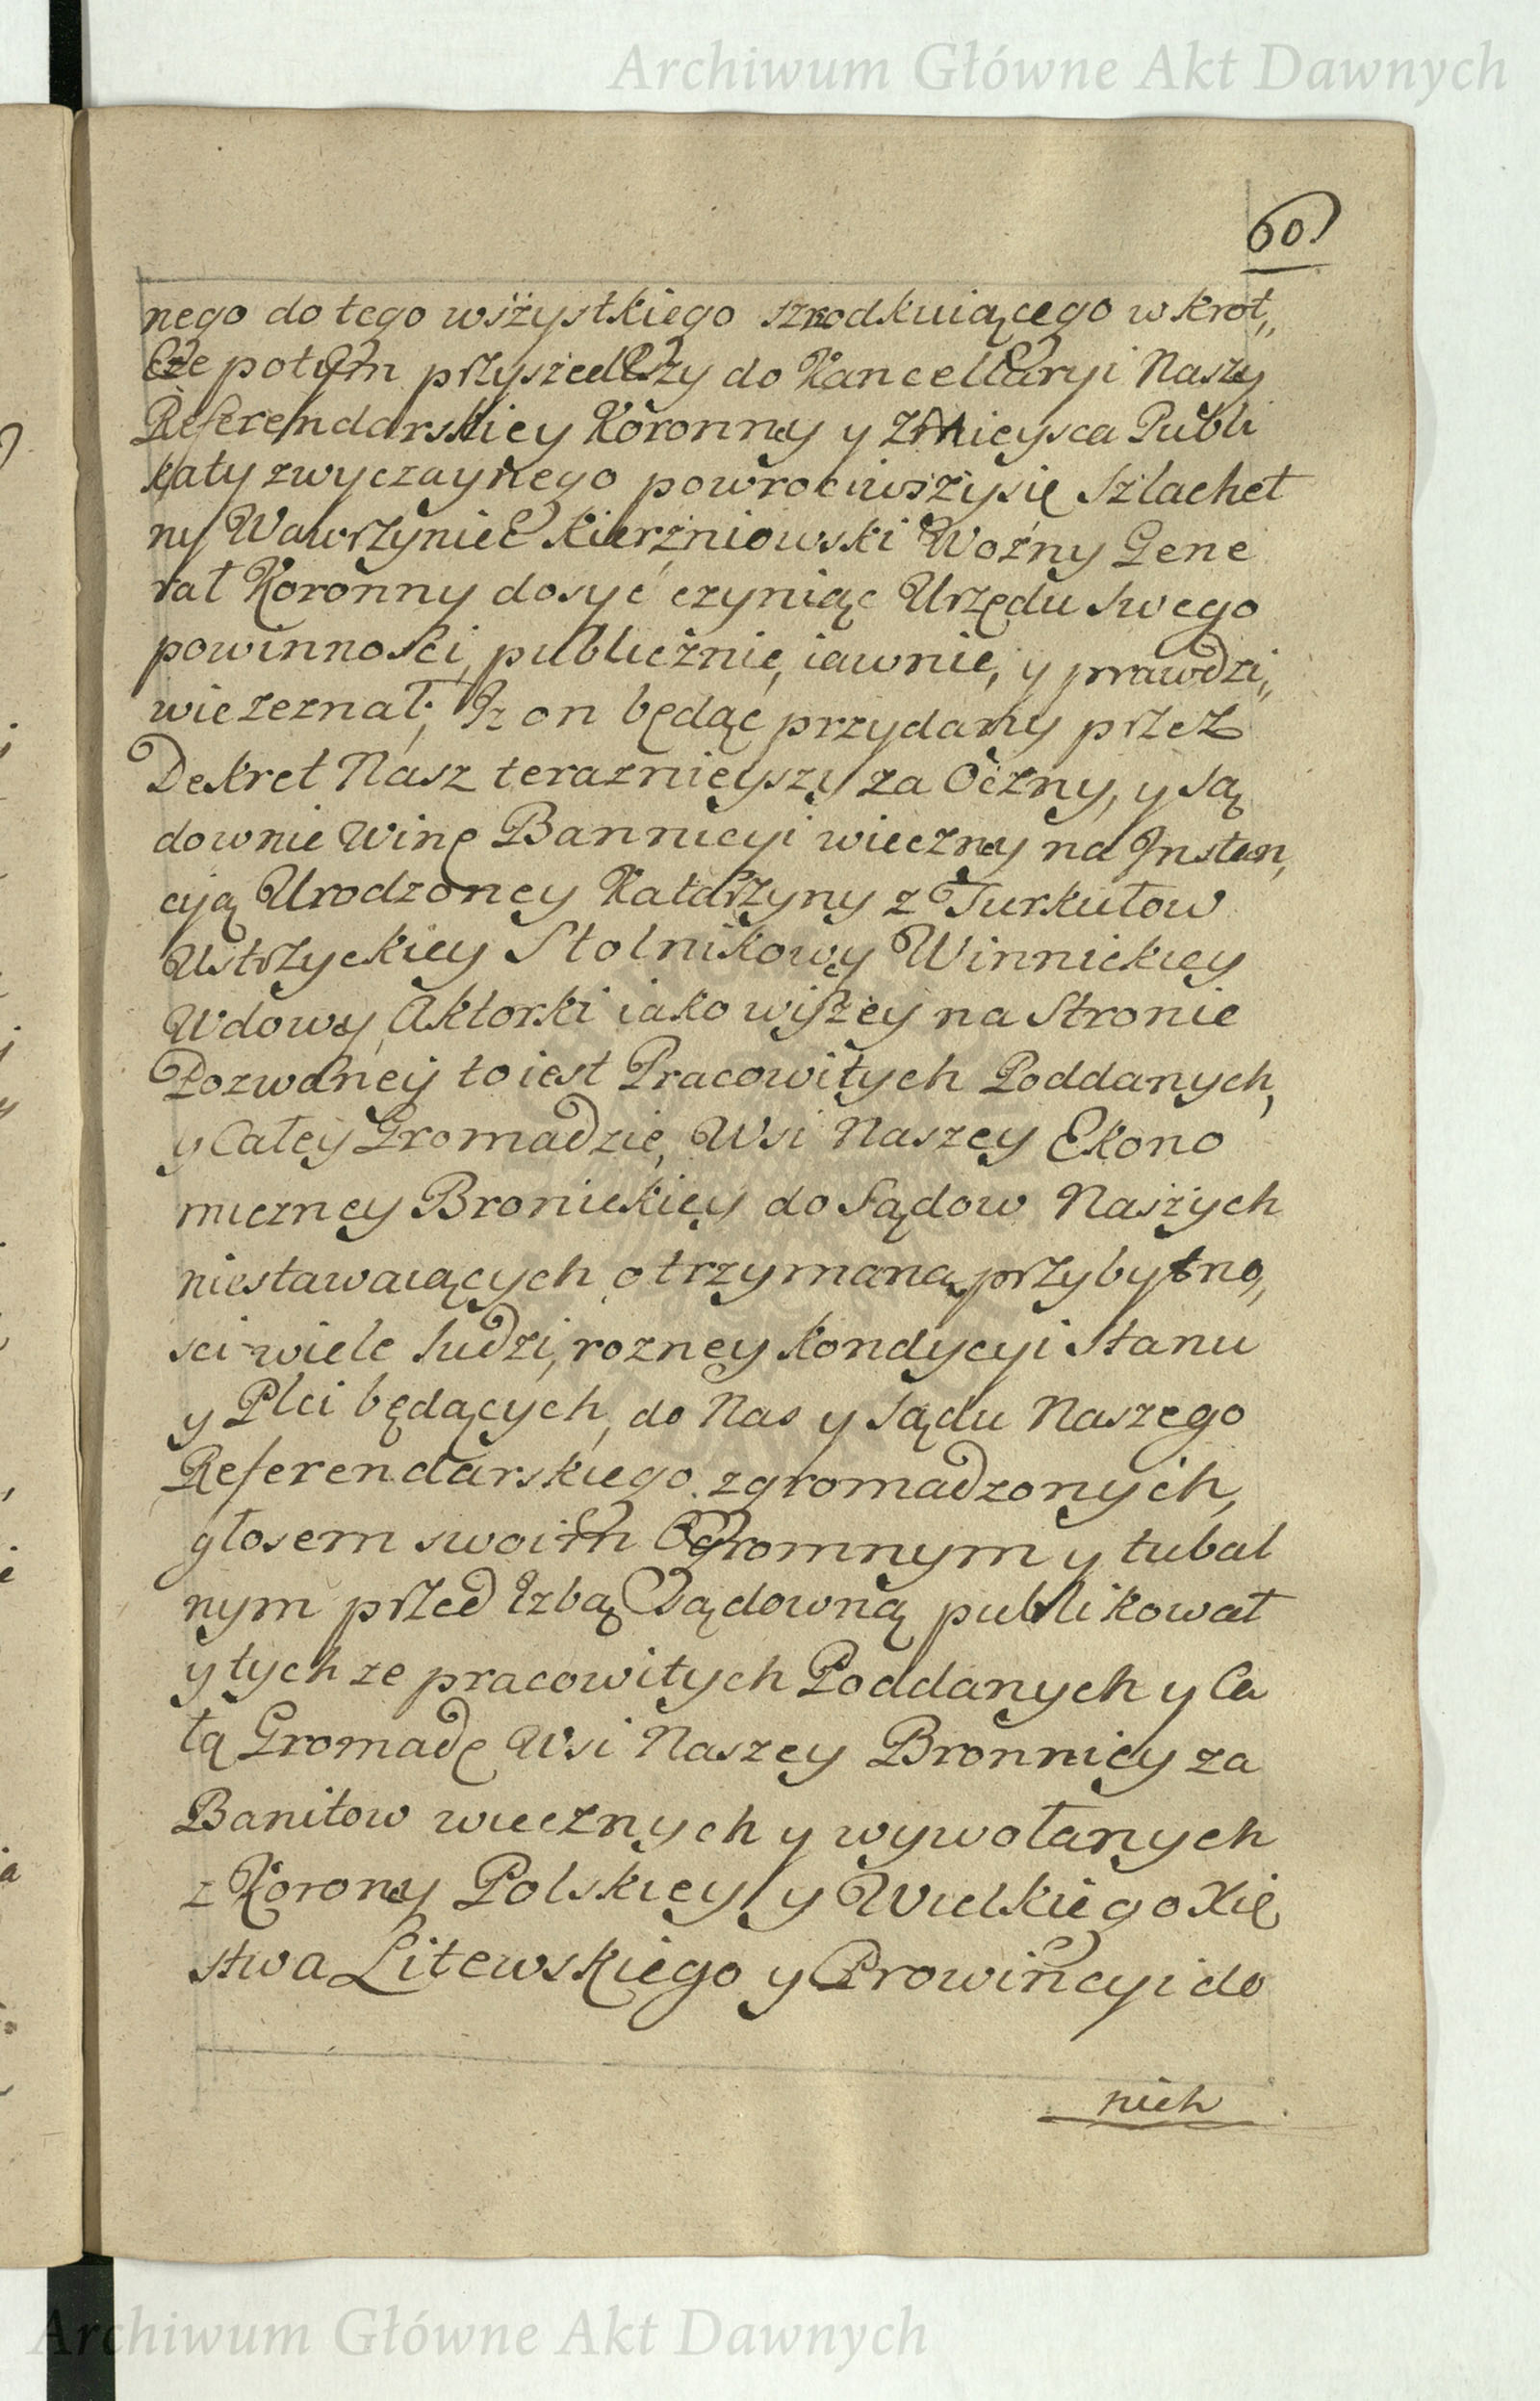 Archiwum Główne Akt Dawnych
60
nego do tego wszystkiego szrodkuiącego w krot„
cze potym przyszedłszy do Kancellaryi Naszy
Referendarskiey Koronney y z Mieysca Publi
katy zwyczaynego powrociwszysię Szlachet
ny Wawrzyniec Kierzniowski Woźny Gene
rał Koronny dosyć czyniąc Urzędu swego
powinności, publicznie, iawnie, y prawdzi„
wie zeznał; Iz on będąc przydany przez
Dekret Nasz teraznieyszy za Oczny, y są
downie Winę Bannicyi wieczney na Instan„
cyją Urodzoney Katarzyny z Turkułow
Ustrzyckiey Stolnikowy Winnickiey
Wdowy, Aktorki iako wyżey na Stronie
Pozwaney to iest Pracowitych Poddanych,
y Całey Gromadzie, Wsi Naszey Ekono
miczney Bronickiey do Sądow Naszych
niestawaiących otrzymaną, przybytno„
sci wiele ludzi, rozney kondycyi Stanu
y Plci będących, do Nas y Sądu Naszego
Referendarskiego zgromadzonych,
głosem swoim Ogromnym y tubal
nym przed Izbą Sądowną publikował
y tych ze pracowitych Poddanych y Ca
łą Gromadę Wsi Naszey Bronnicy za
Banitow wiecznych y wywołanych
z Korony Polskiey y Wielkiego Xię
stwa Litewskiego y Prowincyi do
nich
Archiwum Główne Akt Dawnych